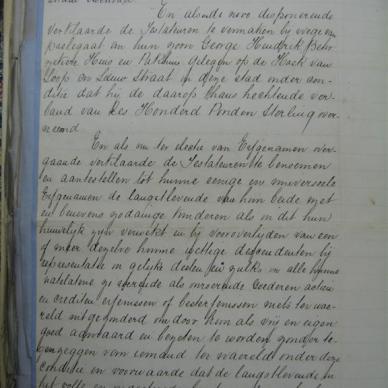 En alsnu de novo disponeerende
verklaarde de Testateuren te vermaken bij wege van
prelegaat aan hun zoon George Hendrik
Huis en Pakhuis gelegen op de Hoek van
Loop en Straat in deze stad onder con-
ditie dat hij de daarop thans hechtende ver-
band van Zes Honderd Ponden Sterling over-
neemd
En als nu ter electie van Erfgenamen over-
gaande verklaarde de Testateuren te benoemen
en aantestellen tot hunne eenige en universeele
Erfgenamen de langstlevende van hun beide met
en benevens zodanige kinderen als in dit hun
huwelijk zijn verwekt en bij vooroverlijden van een
of meer dezelve hunne wettige descendenten bij
representatie in gelijke deelen en zulks in alle hunne
natelatene zo roerende als onroerende Goederen actien
en crediten erfenissen of besterfenissen niets ter wae-
reld uitgezonderd om door hen als vrij en eigen
goed aanvaard en bezeten te worden zonder te-
genzeggen van iemand ter waereld onder deze
conditie en voorwaarde dat de langstlevende in
het volle en